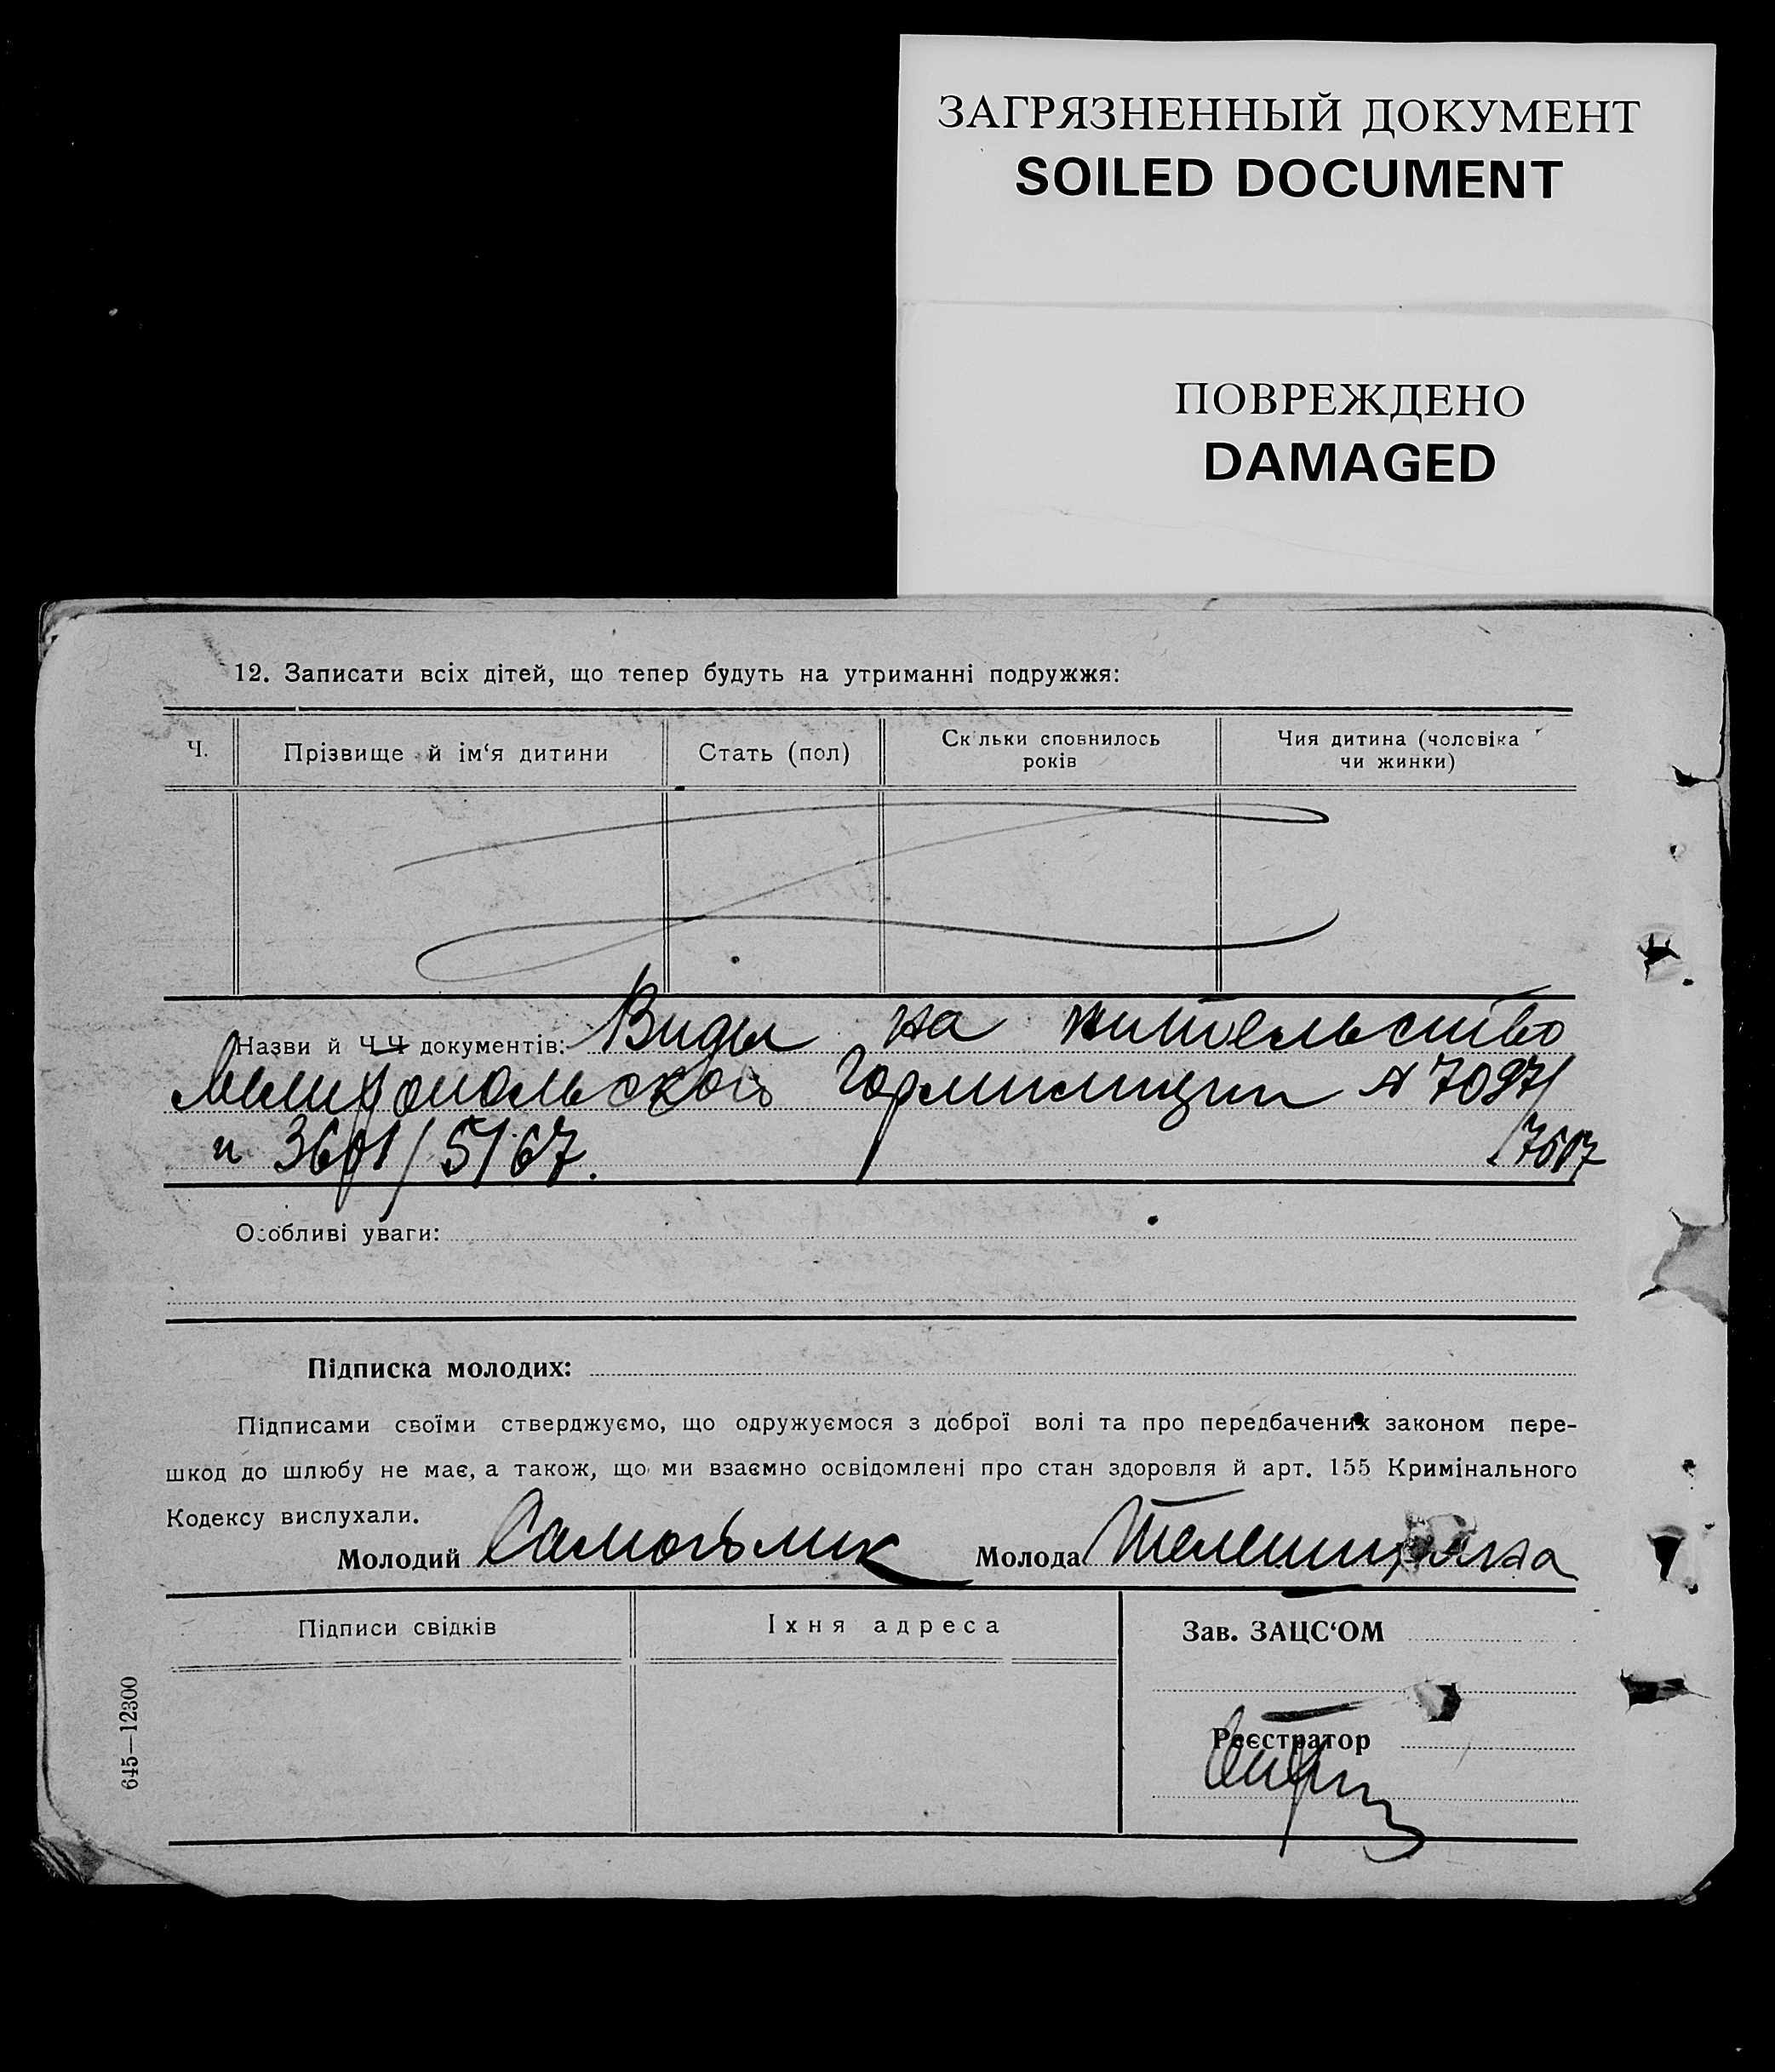 ЗАГРЯЗНЕННЫЙ ДОКУМЕНТ
SOILED DOCUMENT
ПОВРЕЖДЕНО
DAMAGED
12. Записати всіх дітей, що тепер будуть на утриманні подружжя:
Ч.
Прізвище й ім‘я дитини
Стать (пол)
Ск льки сповнилось
років
Чия дитина (чоловіка
чи жинки)
Назви й Ч.Ч документів: Виды на жительство
Мелитопольской Гормилиции № 7097/
7507
и 3601/5167.
Особливі уваги:
Підписка молодих:
Підписами своїми стверджуємо, що одружуємося з доброї волі та про передбачених законом пере-
шкод до шлюбу не має, а також, що ми взаємно освідомлені про стан здоровля й арт. 155 Кримінального
Кодексу вислухали.
Молодий
Молода
Підписи свідків
Їхня адреса
Зав. ЗАЦС‘ОМ
Реєстратор
645—12300